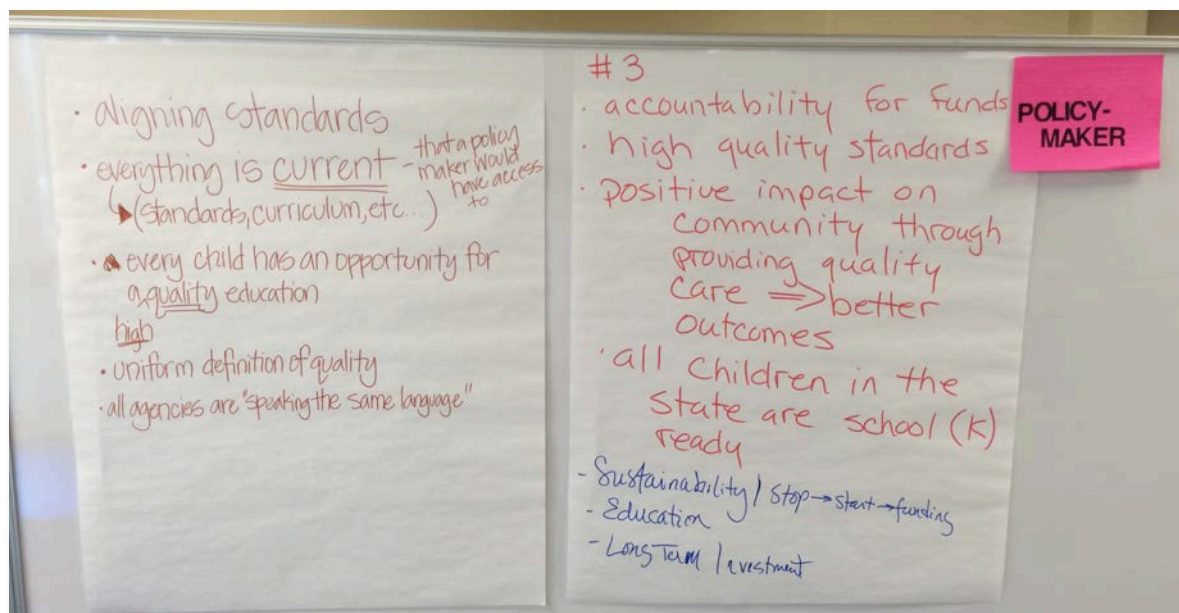 • aligning standards
• everything is current – that a policy
maker would
have access
to
(standards, curriculum, etc...)
• every child has an opportunity for
a quality education
high
• uniform definition of quality
• all agencies are "speaking the same language"
#3
• accountability for funds
• high quality standards
• positive impact on
community through
providing quality
care ⇒ better
outcomes
• all children in the
state are school (K)
ready
- Sustainability / Stop → start → funding
- Education
- Long Term Investment
POLICY-
MAKER